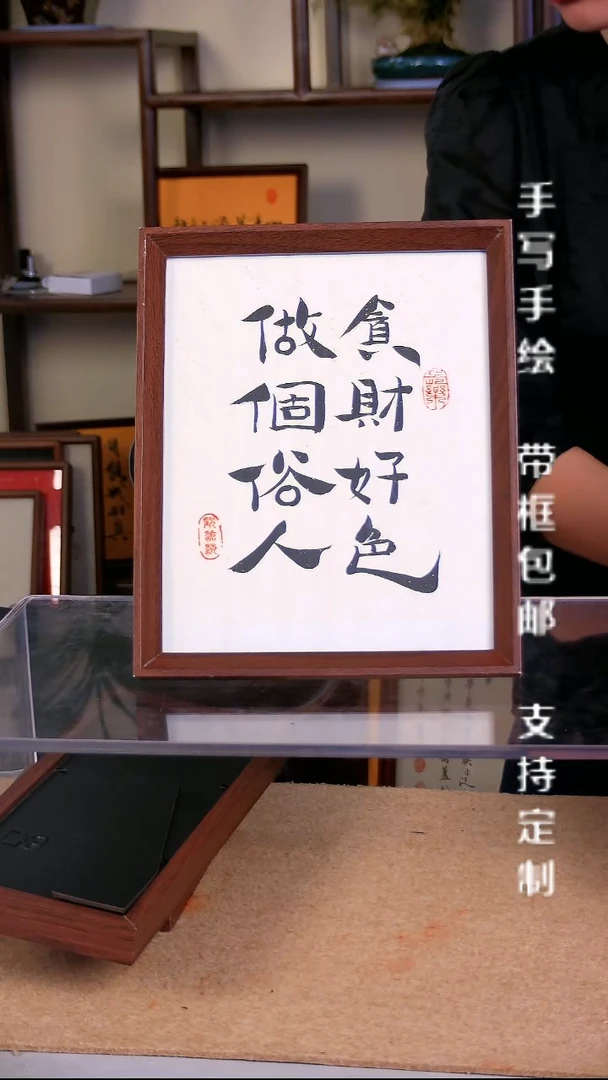 貪財好色
做個俗人
手写手绘 带框包邮 支持定制